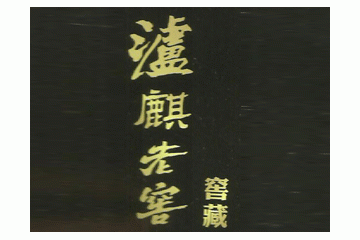 瀘麒老窖
窖藏